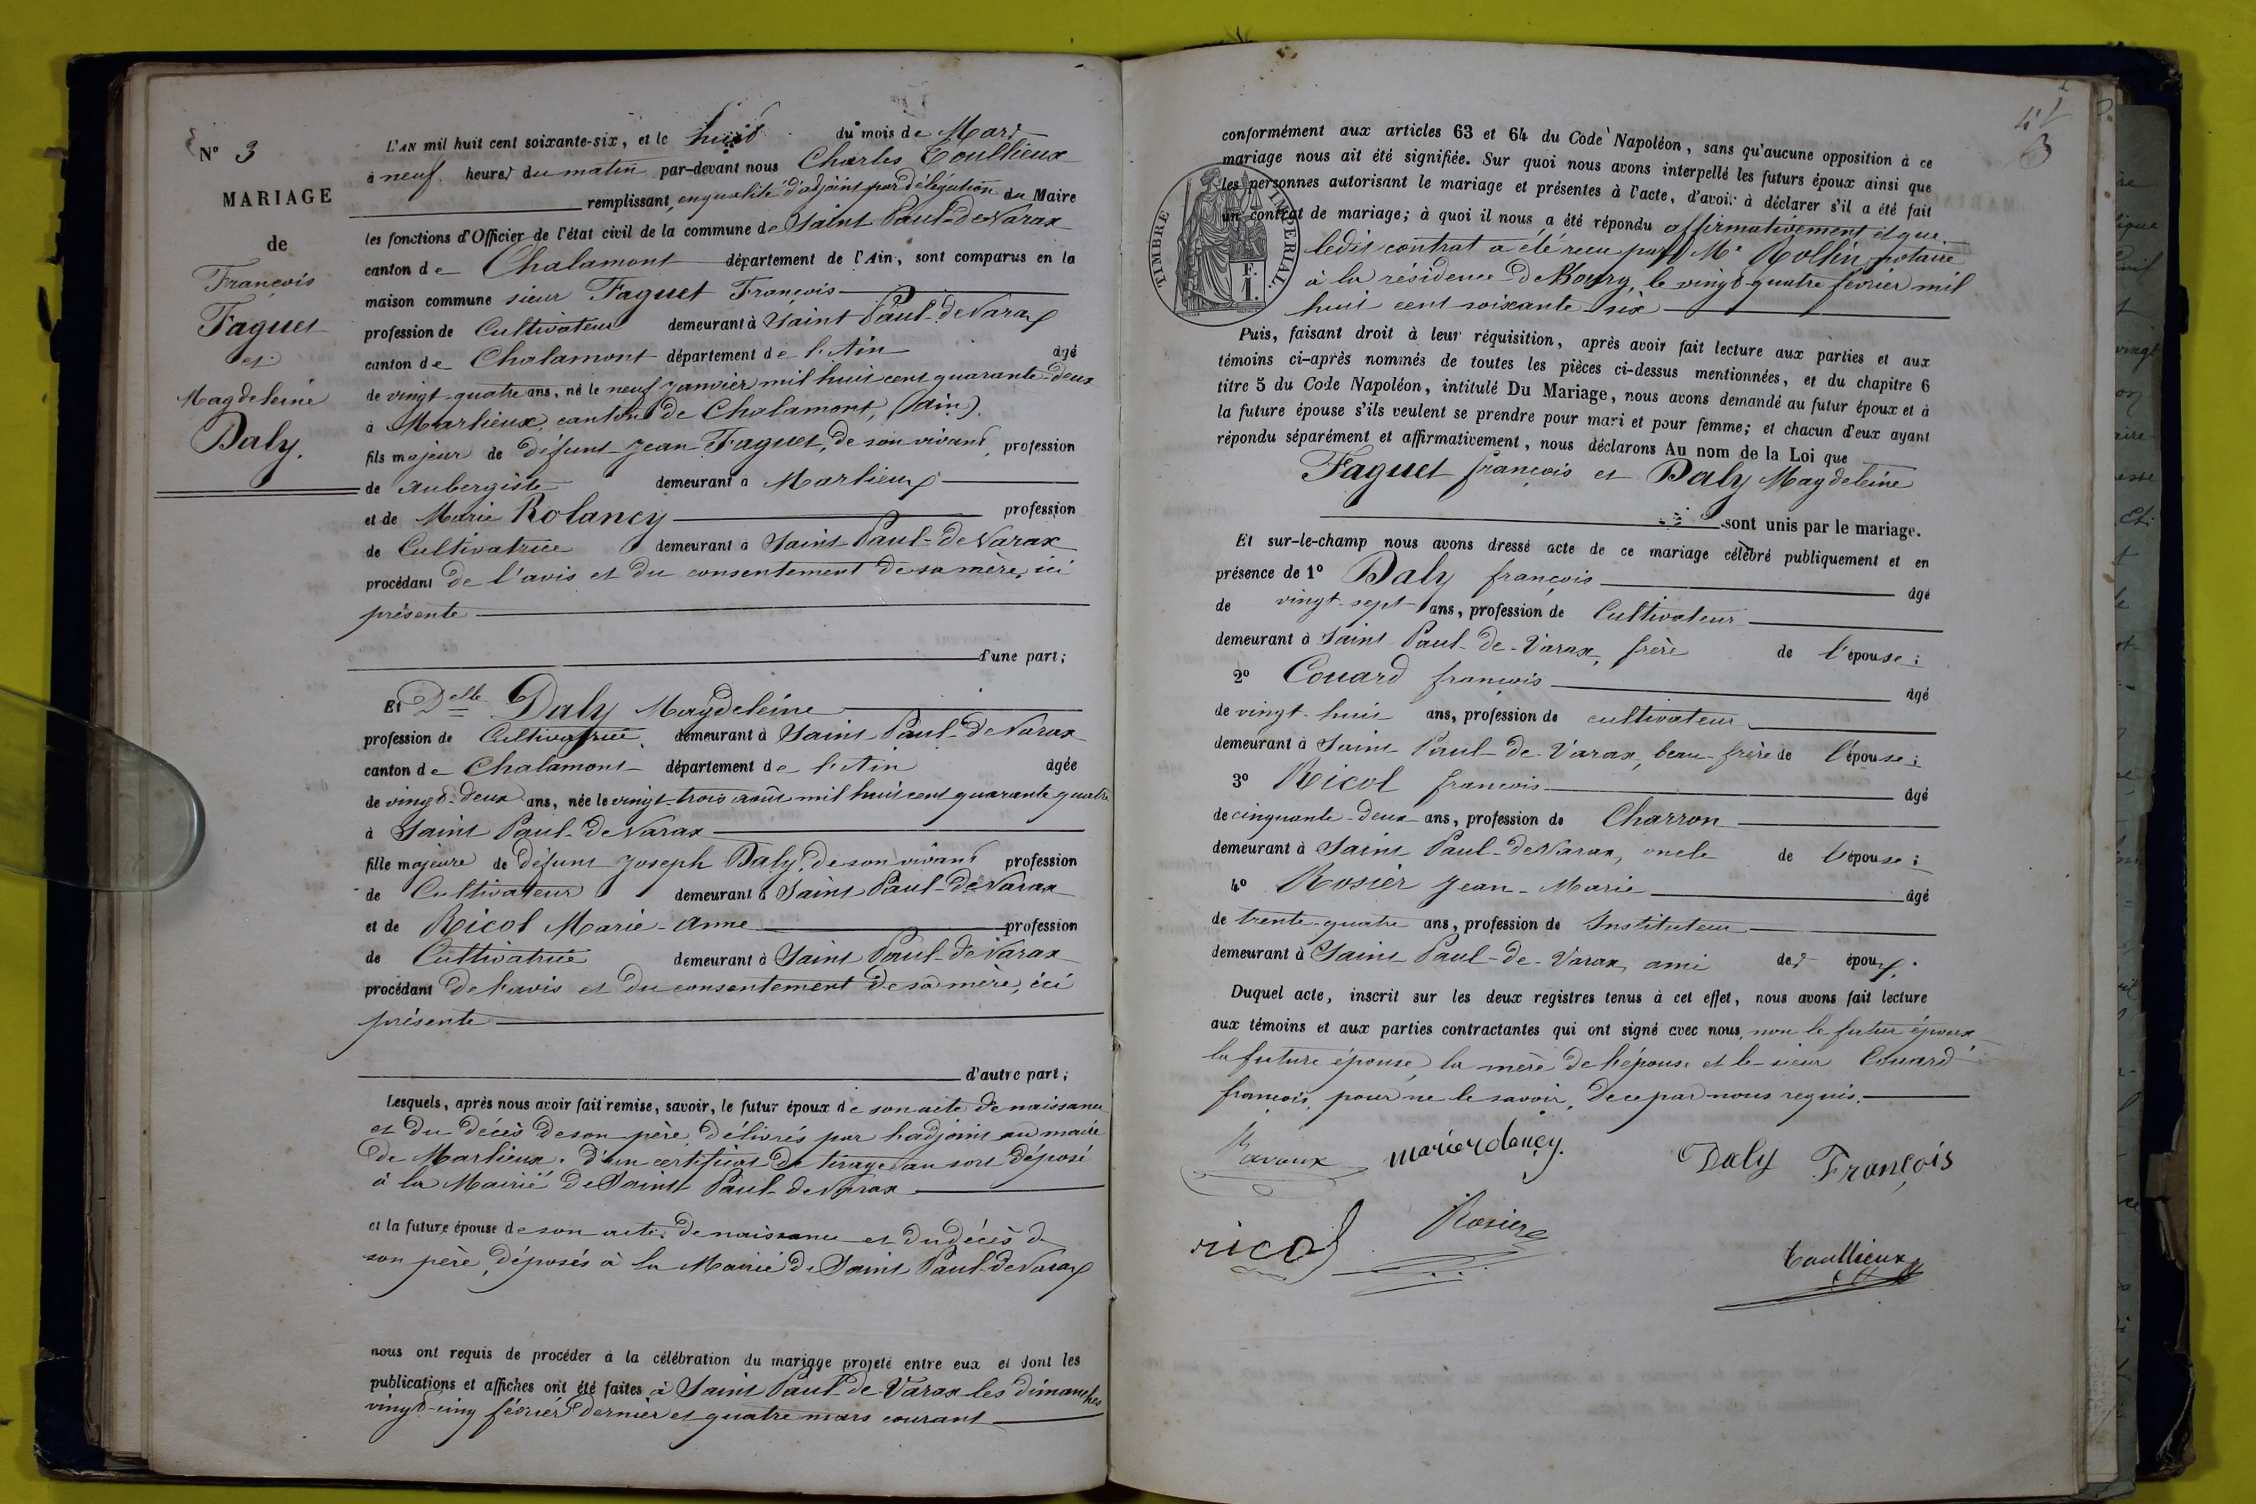 N° 3
MARIAGE
de
François
Faguet
et
Magdeleine
Daly.
L'AN mil huit cent soixante-six, et le huit du mois de Mars
à neuf heures du matin par-devant nous Charles Toullieux
remplissant, en qualité d'adjoint par délégation du Maire
les fonctions d'Officier de l'état civil de la commune de Saint Paul-de Varax
canton de Chalamont département de l'Ain, sont comparus en la
maison commune sieur Faguet François
profession de Cultivateur demeurant à Saint Paul-de Varax
canton de Chalamont département de l'Ain âgé
de vingt-quatre ans, né le neuf Janvier mil huit cent quarante-deux
à Marlieux, canton de Chalamont, (Ain).
fils majeur de défunt Jean Faguet, de son vivant, profession
de Aubergiste demeurant à Marlieux
et de Marie Rolancy profession
de Cultivatrice demeurant à Saint Paul-de Varax
procédant de l'avis et du consentement de sa mère, ici
présente
d'une part;
Et Delle Daly Magdeleine
profession de Cultivatrice demeurant à Saint Paul-de Varax
canton de Chalamont département de l'Ain âgée
de vingt-deux ans, née le vingt-trois août mil huit cent quarante quatre
à Saint Paul-de Varax
fille majeure de défunt Joseph Daly, de son vivant profession
de Cultivateur demeurant à Saint Paul-de Varax
et de Ricol Marie-Anne profession
de Cultivatrice demeurant à Saint Paul-de Varax
procédant de l'avis et du consentement de sa mère, ici
présente
d'autre part;
Lesquels, après nous avoir fait remise, savoir, le futur époux de son acte de naissance
et du décès de son père, délivrés par l'adjoint au maire
de Marlieux. d'un certificat de tirage au sort déposé
à la Mairie de Saint Paul de Varax
et la future épouse de son acte de naissance et du décès de
son père, déposés à la Mairie de Saint Paul-de Varax
nous ont requis de procéder à la célébration du mariage projeté entre eux et dont les
publications et affiches ont été faites à Saint Paul de Varax les dimanches
vingt-cinq février dernier et quatre mars courant
3
conformément aux articles 63 et 64 du Code Napoléon, sans qu'aucune opposition à ce
mariage nous ait été signifiée. Sur quoi nous avons interpellé les futurs époux ainsi que
les personnes autorisant le mariage et présentes à l'acte, d'avoir à déclarer s'il a été fait
un contrat de mariage; à quoi il nous a été répondu affirmativement et que
ledit contrat a été reçu par Me Rollin, notaire
à la résidence de Bourg, le vingt-quatre février mil
huit cent soixante-six
TIMBRE IMPERIAL.
F.
1.
Puis, faisant droit à leur réquisition, après avoir fait lecture aux parties et aux
témoins ci-après nommés de toutes les pièces ci-dessus mentionnées, et du chapitre 6
titre 5 du Code Napoléon, intitulé Du Mariage, nous avons demandé au futur époux et à
la future épouse s'ils veulent se prendre pour mari et pour femme; et chacun d'eux ayant
répondu séparément et affirmativement, nous déclarons Au nom de la Loi que
Faguet françois et Daly Magdeleine
sont unis par le mariage.
Et sur-le-champ nous avons dressé acte de ce mariage célébré publiquement et en
présence de 1° Daly françois âgé
de vingt-sept ans, profession de Cultivateur
demeurant à Saint Paul-de-Varax, frère de l'épouse;
2° Couard françois âgé
de vingt-huit ans, profession de cultivateur
demeurant à Saint Paul-de-Varax, beau-frère de l'épouse;
3° Ricol françois âgé
de cinquante-deux ans, profession de Charron
demeurant à Saint Paul-de Varax, oncle de l'épouse;
4° Rosier Jean-Marie âgé
de trente-quatre ans, profession de Instituteur
demeurant à Saint Paul-de-Varax, ami des époux.
Duquel acte, inscrit sur les deux registres tenus à cet effet, nous avons fait lecture
aux témoins et aux parties contractantes qui ont signé avec nous, non le futur époux,
la future épouse, la mère de l'épouse et le sieur Couard
françois, pour ne le savoir, de ce par nous requis.
marie rolancy. Daly François
ricol Rosier
Toullieux